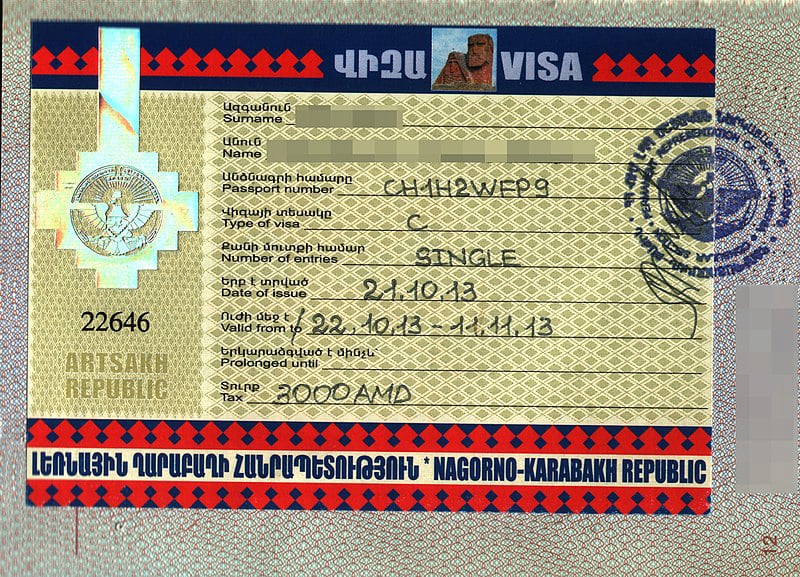 ՎԻԶԱ VISA
Ազգանուն
Surname
Անուն
Name
Անձնագրի համարը
Passport number CH1H2WFP9
Վիզայի տեսակը
Type of visa C
Քանի մուտքի համար
Number of entries SINGLE
Երբ է տրված
Date of issue 21.10.13
Ուժի մեջ է
Valid from to 22.10.13 - 11.11.13
Երկարաձգված է մինչև
Prolonged until
Տուրք
Tax 3000AMD
22646
ARTSAKH
REPUBLIC
ԼԵՌՆԱՅԻՆ ՂԱՐԱԲԱՂԻ ՀԱՆՐԱՊԵՏՈՒԹՅՈՒՆ * NAGORNO-KARABAKH REPUBLIC
12